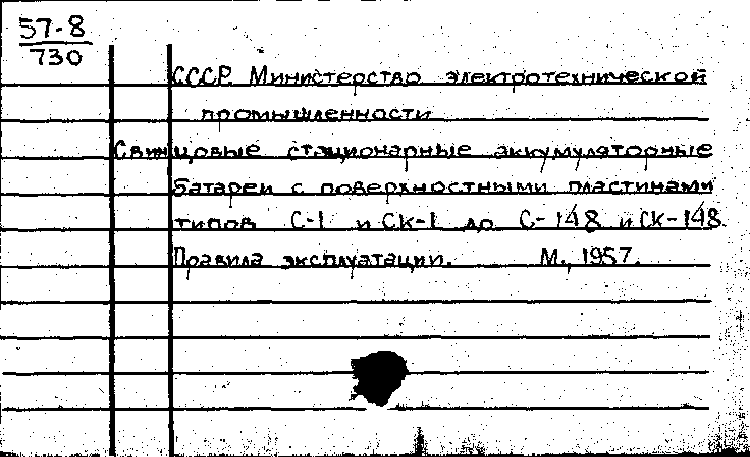 57-8
730
СССР. Министерство электротехнической
промышленности
Свинцовые стационарные аккумуляторные
батареи с поверхностными пластинами
типов С-1 и СК-1 до С-148 и СК-148.
Правила эксплуатации. М., 1957.